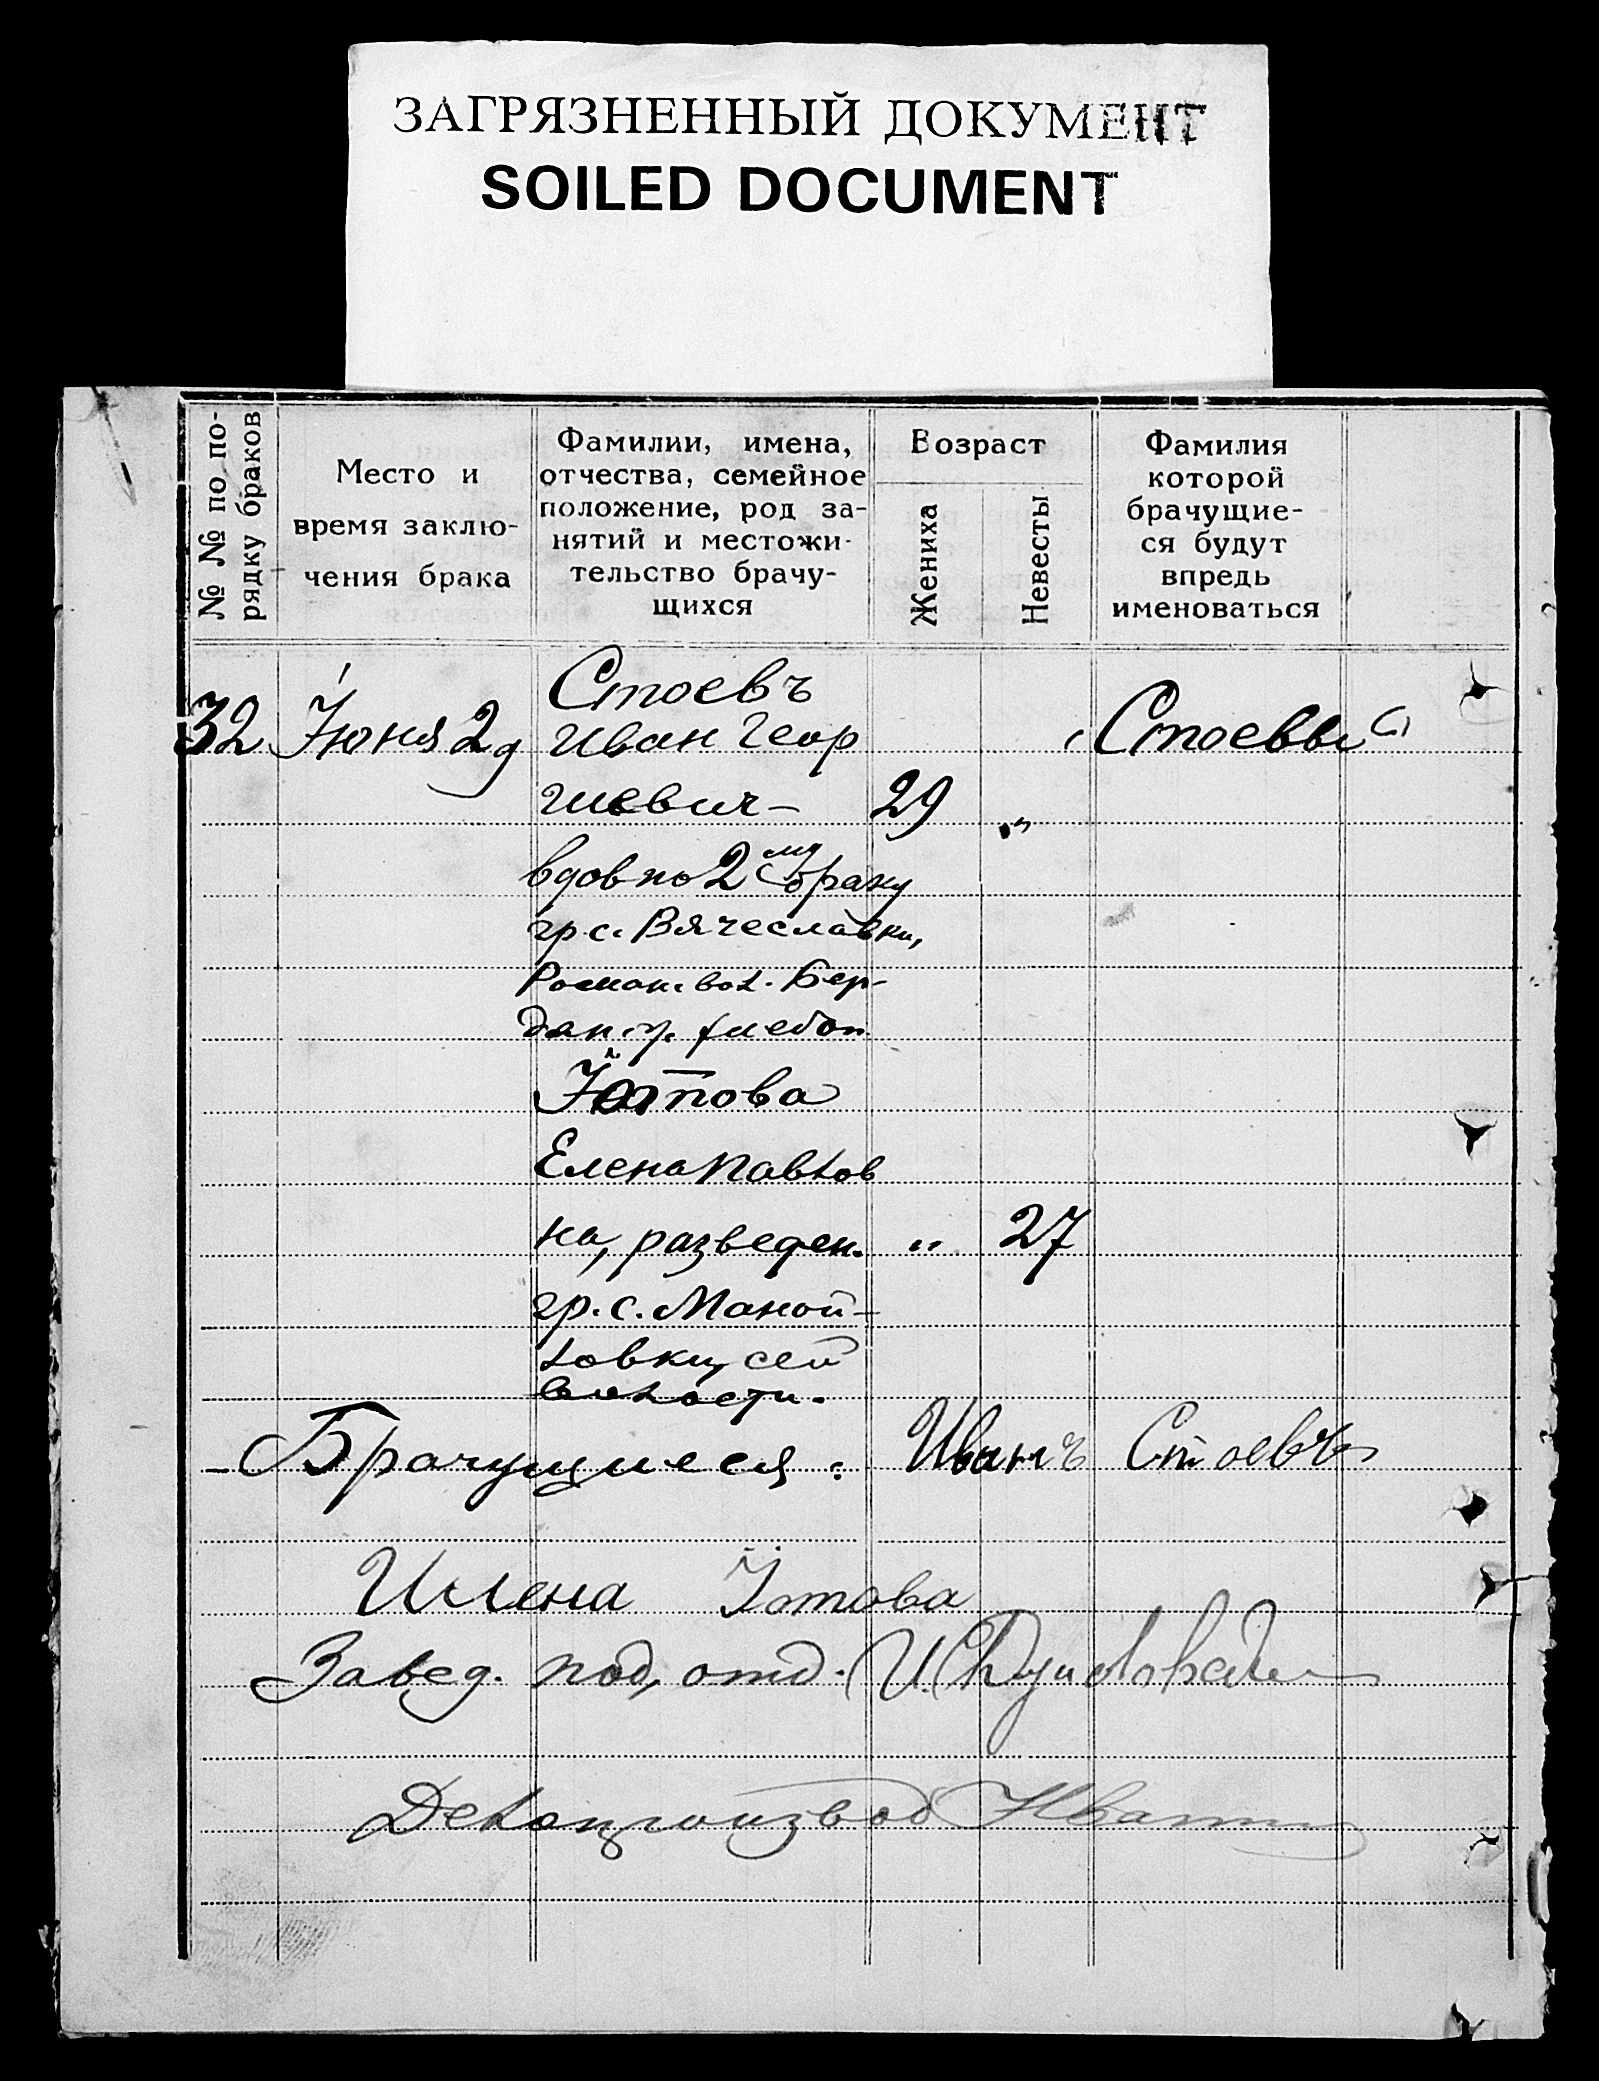 ЗАГРЯЗНЕННЫЙ ДОКУМЕНТ
SOILED DOCUMENT
№ № по по-
рядку браков
Место и
время заклю-
чения брака
Фамилии, имена,
отчества, семейное
положение, род за-
нятий и местожи-
тельство брачу-
щихся
Возраст
Жениха
Невесты
Фамилия
которой
брачущие-
ся будут
впредь
именоваться
Стоевъ
32 Июня 2д Иван Геор „Стоевы“
гиевич – 29 „
вдов по 2 му браку
гр. с. Вячеславки,
Роман. вол. Бер-
дян. у. хлебоп.
Йотова
Елена Павлов
на, разведен. „ 27
гр. с. Маной-
ловки, сей
волости.
– Брачущиеся: Иванъ Стоевъ
Илена Їотова
Завед. под, отд.
Делопроизвод